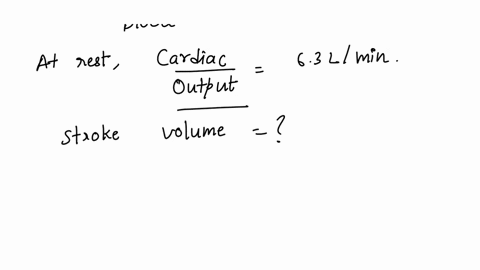 At rest, Cardiac Output = 6.3 L/min.
stroke volume = ?